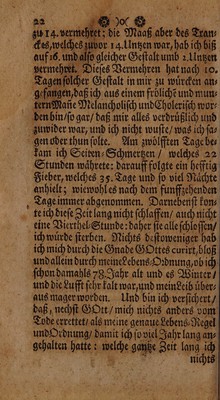 22
zu 14. vermehret; die Maaß aber des Tran-
ckes, welches zuvor 14. Untzen war, hab ich biß
auf 16. und also gleicher Gestalt umb 2. Untzen
vermehret. Dieses Vermehren hat nach 10.
Tagen solcher Gestalt in mir zu würcken an-
gefangen, daß ich aus einem fröliche und mun-
tern Mañe Melancholisch und Cholerisch wor-
den bin/ so gar/ daß mir alles verdrüßlich und
zuwider war, und ich nicht wuste/ was ich sa-
gen oder thun solte. Am zwölfften Tage be-
kam ich Seiten-Schmertzen/ welches 22
Stunden währete; darauff folgte ein hefftig
Fieber, welches 35. Tage und so viel Nächte
anhielt; wiewohl es nach dem funffzehenden
Tage immer abgenommen. Darnebenst kon-
te ich diese Zeit lang nicht schlaffen/ auch nicht
eine Vierthel-Stunde: daher sie alle schlossen/
ich würde sterben. Nichts destoweniger hab
ich mich durch die Gnade GOttes curirt, bloß
und allein durch meine Lebens-Ordnung, ob ich
schon damahls 78. Jahr alt und es Winter/
und die Lufft sehr kalt war, und mein Leib über-
aus mager worden. Und bin ich versichert/
daß, nechst GOtt/ mich nichts anders vom
Tode errettet/ als meine genaue Lebens-Regel
und Ordnung/ damit ich so viel Jahr lang an-
gehalten hatte: welche gantze Zeit lang ich
nichts